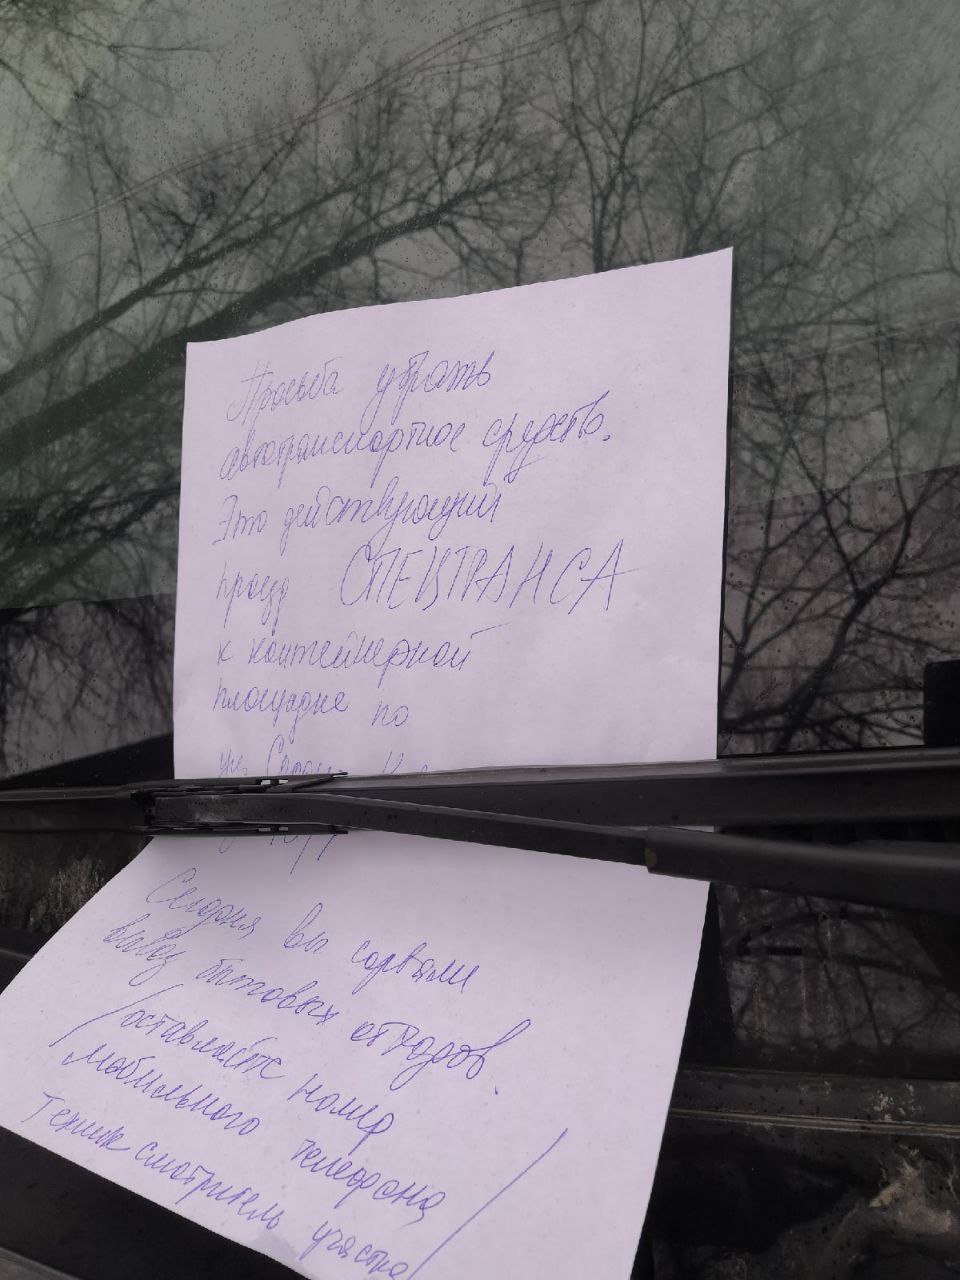 Просьба убрать
автотранспортное средство.
Это действующий
проезд СПЕЦТРАНСА
к контейнерной
площадке по
ул.
Сегодня вы сорвали
вывоз бытовых отходов.
/оставляйте номер
мобильного телефона/
Техник смотритель участка